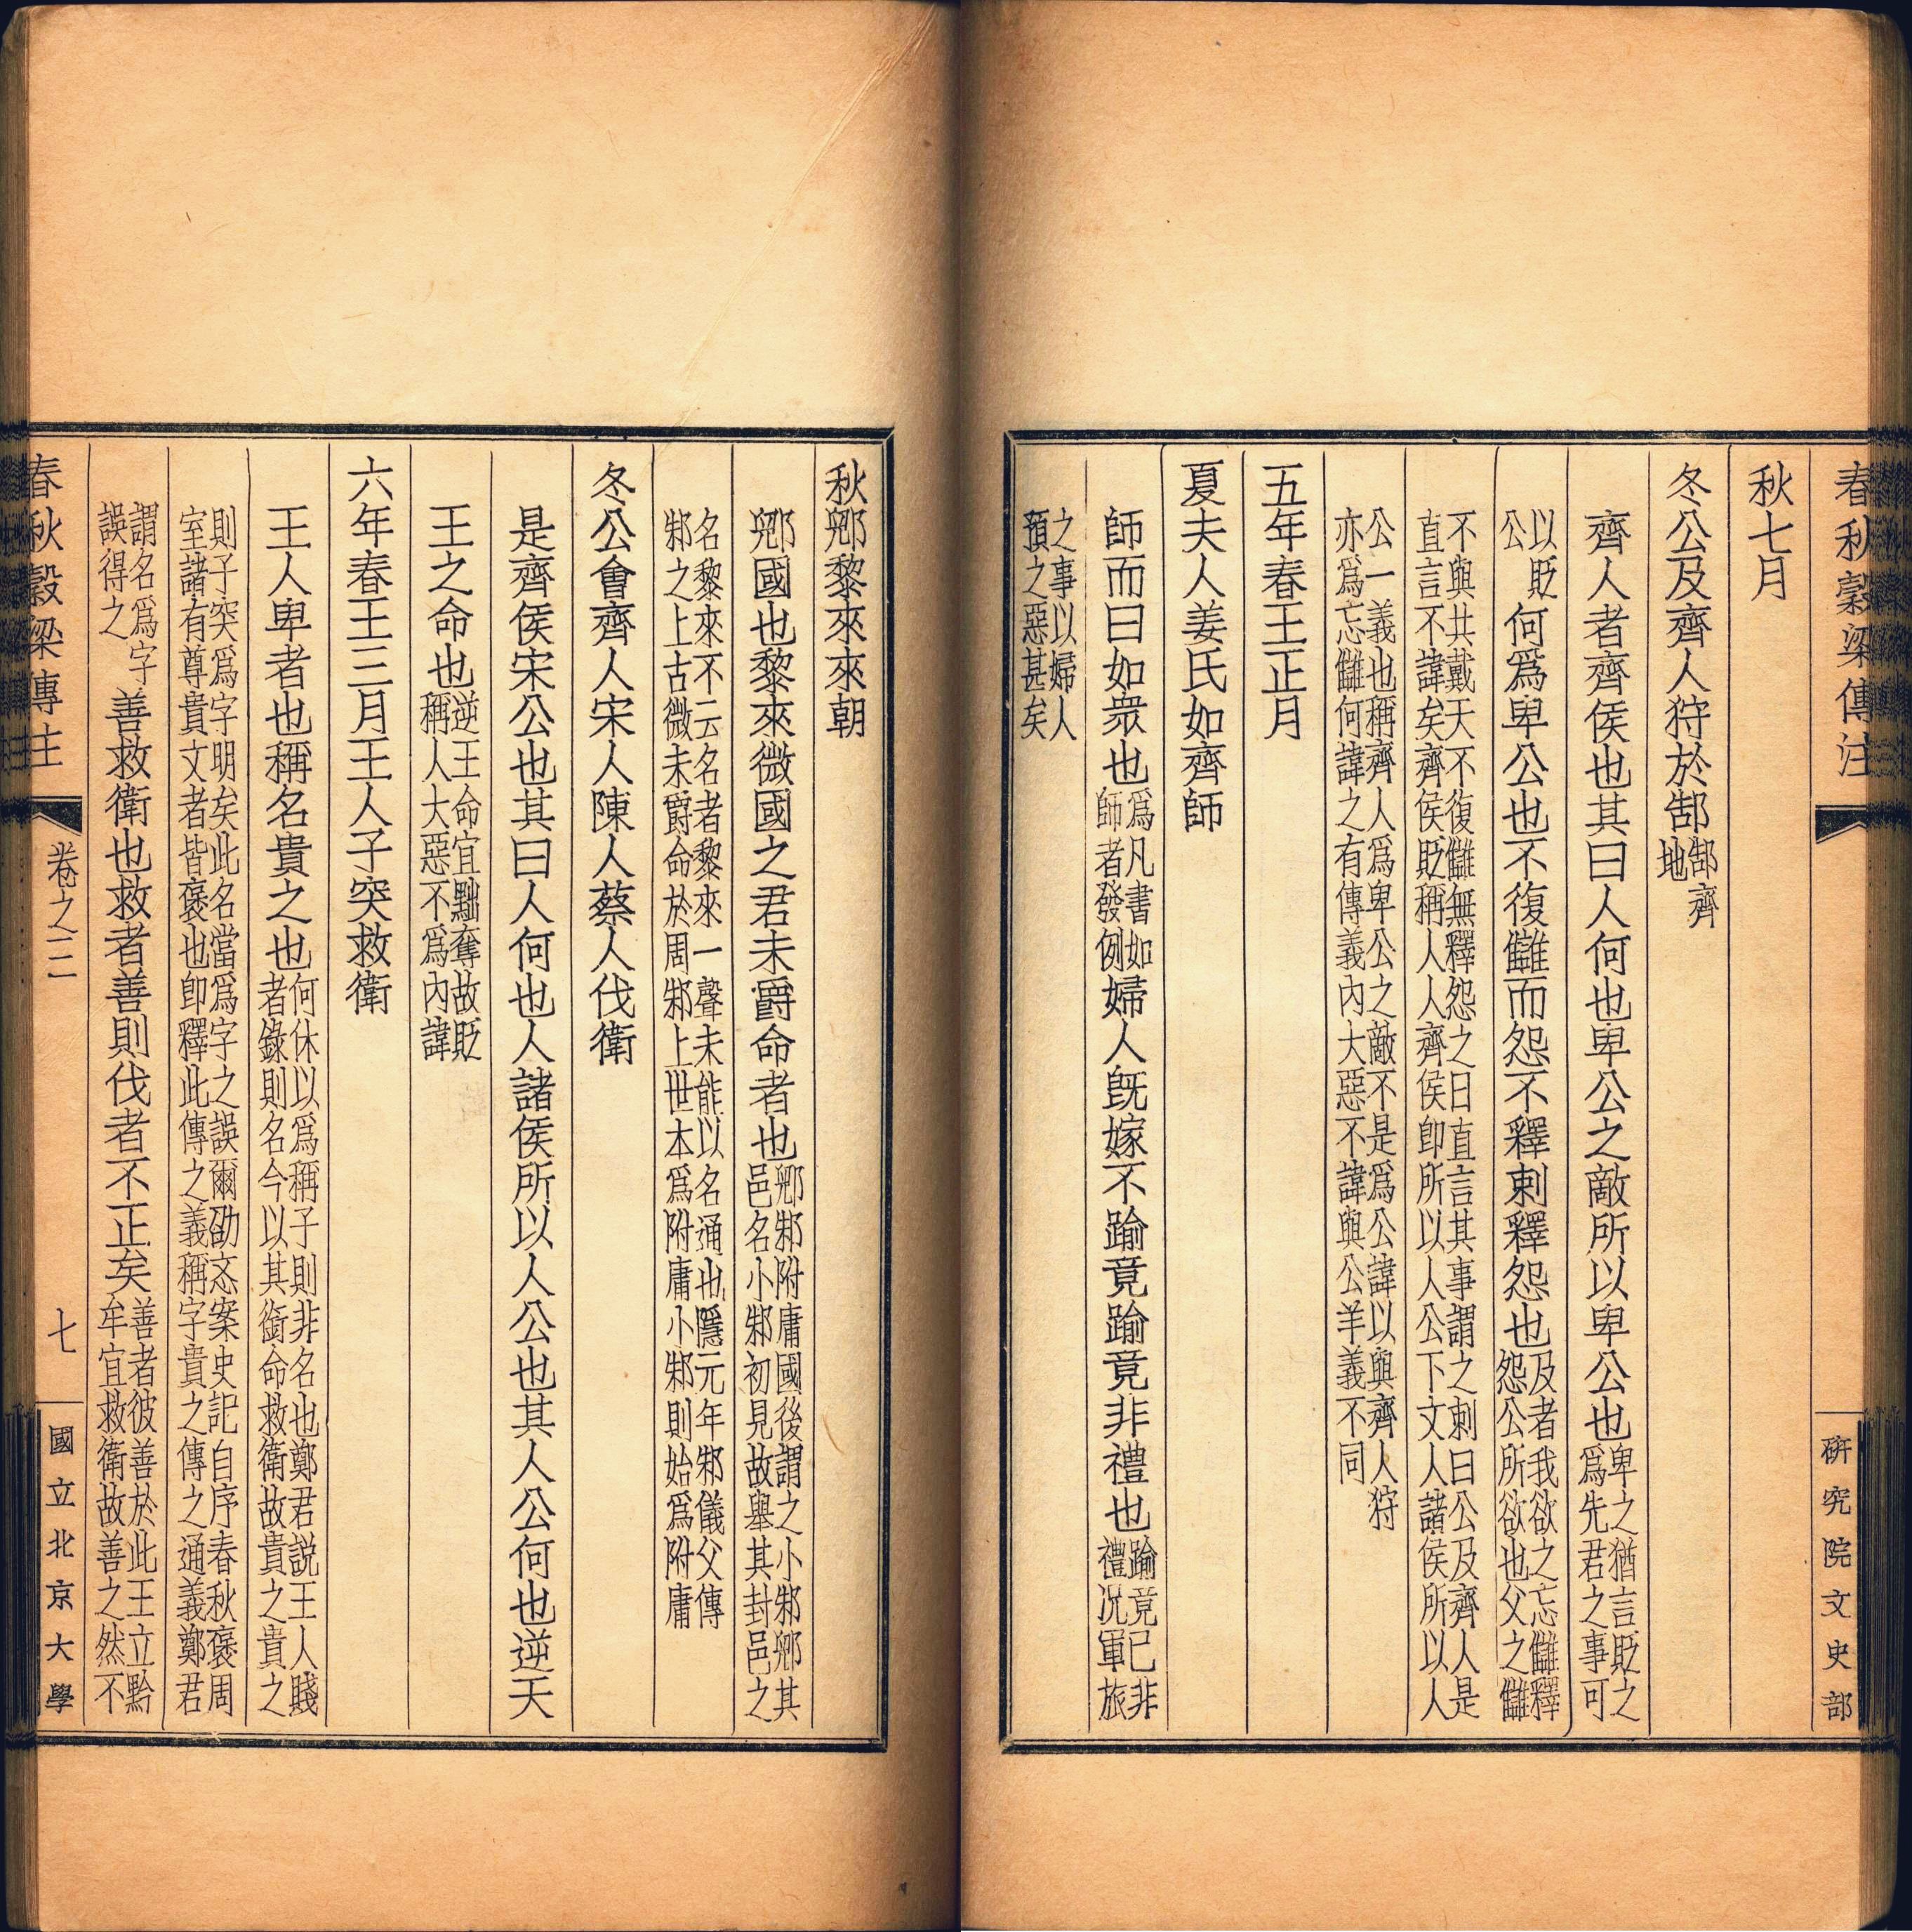 春秋穀梁傳注
研究院文史部
秋七月
冬公及齊人狩於郜郜齊地
齊人者齊侯也其曰人何也卑公之敵所以卑公也卑之猶言貶之爲先君之事可
以貶公何爲卑公也不復讎而怨不釋刺釋怨也及者我欲之忘讎釋怨公所欲也父之讎
不與共戴天不復讎無釋怨之日直言其事謂之刺曰公及齊人是直言不諱矣齊侯貶稱人人齊侯卽所以人公下文人諸侯所以人
公一義也稱齊人爲卑公之敵不是爲公諱以與齊人狩亦爲忘讎何諱之有傳義內大惡不諱與公羊義不同
五年春王正月
夏夫人姜氏如齊師
師而曰如衆也爲凡書如師者發例婦人旣嫁不踰竟踰竟非禮也踰竟已非禮况軍旅
之事以婦人預之惡甚矣
秋郳黎來來朝
郳國也黎來微國之君未爵命者也郳邾附庸國後謂之小邾郳其邑名小邾初見故舉其封邑之
名黎來不云名者黎來一聲未能以名通也隱元年邾儀父傳邾之上古微未爵命於周邾上世本爲附庸小邾則始爲附庸
冬公會齊人宋人陳人蔡人伐衛
是齊侯宋公也其曰人何也人諸侯所以人公也其人公何也逆天
王之命也逆王命宜黜奪故貶稱人大惡不爲內諱
六年春王三月王人子突救衛
王人卑者也稱名貴之也何休以爲稱子則非名也鄭君説王人賤者錄則名今以其銜命救衛故貴之貴之
則子突爲字明矣此名當爲字之誤爾劭忞案史記自序春秋褒周室諸有尊貴文者皆褒也卽釋此傳之義稱字貴之傳之通義鄭君
謂名爲字誤得之善救衛也救者善則伐者不正矣善者彼善於此王立黔牟宜救衛故善之然不
春秋穀梁傳注
卷之二
七
國立北京大學